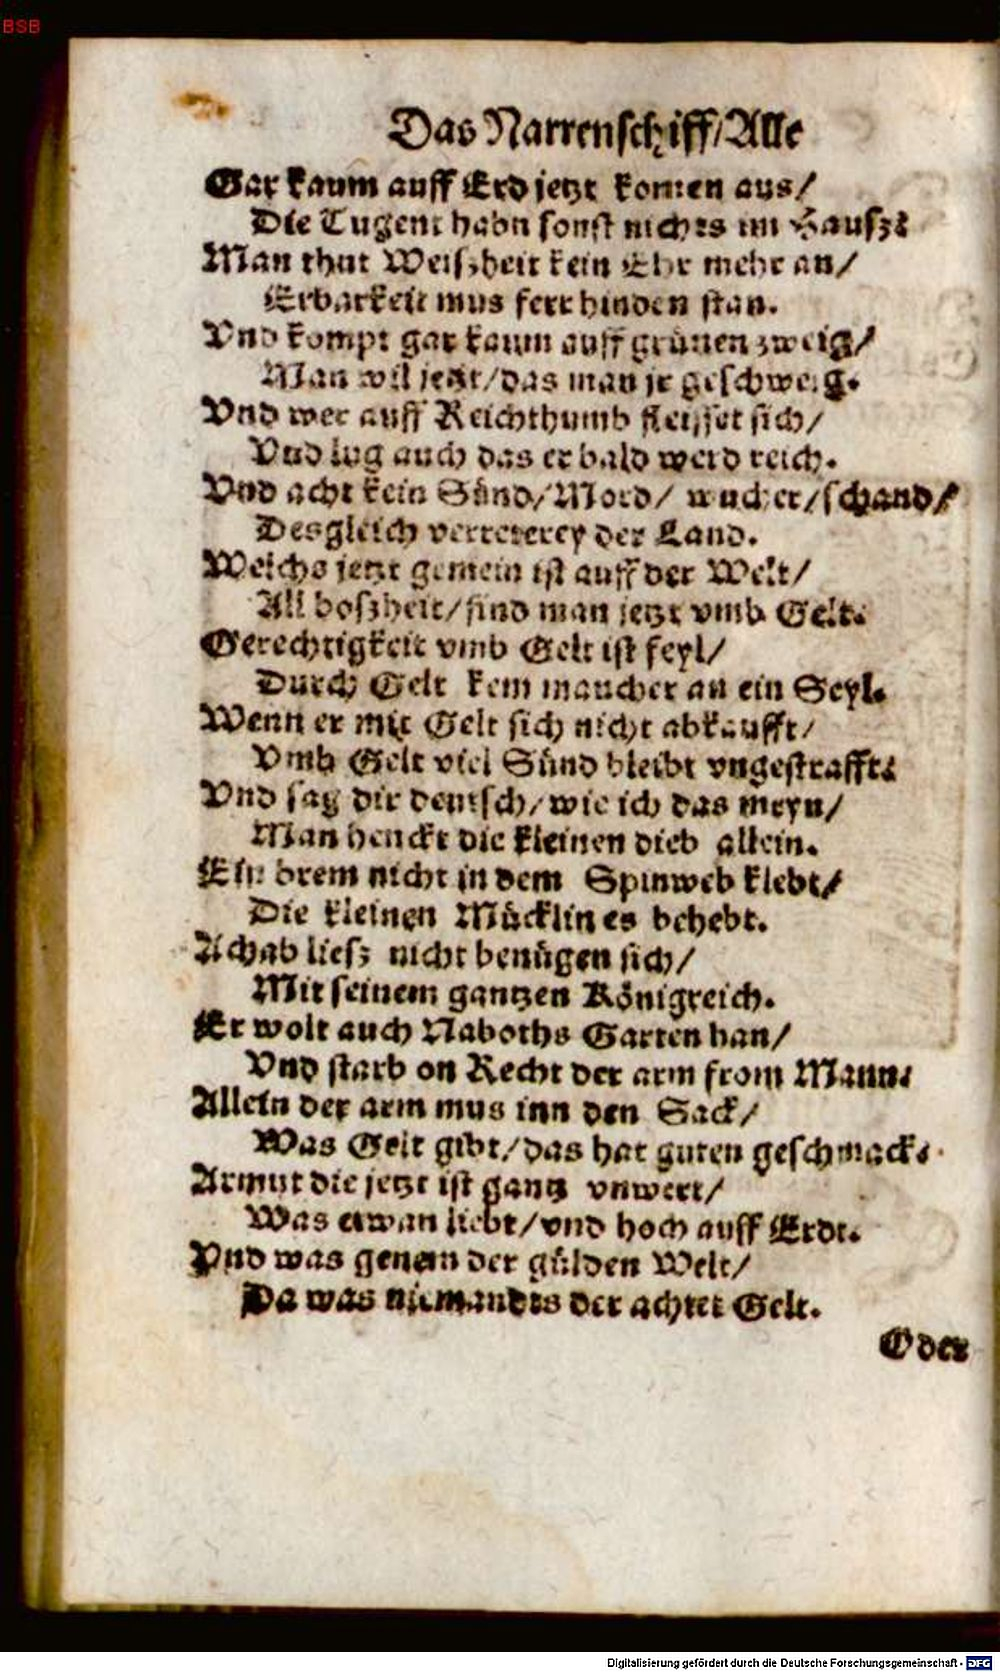 BSB
Das Narrenschiff/Alle
Gar kaum auff Erd jetzt komen aus/
Die Tugent habn sonst nichts im Hausz:
Man thut Weiszheit kein Ehr mehr an/
Erbarkeit mus ferr hinden stan.
Vnd kompt gar kaum auff grünen zweig/
Man wil jetzt/das man jr geschweig.
Vnd wer auff Reichthumb fleisset sich/
Vnd lug auch das er bald werd reich.
Vnd acht kein Sünd/Mord/ wucher/schand/
Desgleich verreterey der Land.
Welchs jetzt gemein ist auff der Welt/
All boszheit/find man jetzt vmb Gelt.
Gerechtigkeit vmb Gelt ist feyl/
Durch Gelt kem mancher an ein Seyl.
Wenn er mit Gelt sich nicht abkaufft/
Vmb Gelt viel Sünd bleibt vngestrafft:
Vnd sag dir deutsch/wie ich das meyn/
Man henckt die kleinen dieb allein.
Ein brem nicht in dem Spinweb klebt/
Die kleinen Mücklin es behebt.
Achab liesz nicht benügen sich/
Mit seinem gantzen Königreich.
Er wolt auch Naboths Garten han/
Vnd starb on Recht der arm from Mann:
Allein der arm mus inn den Sack/
Was Gelt gibt/das hat guten geschmack.
Armut die jetzt ist gantz vnwert/
Was etwan liebt/vnd hoch auff Erdt.
Vnd was genem der gülden Welt/
Da was niemandts der achtet Gelt.
Oder
Digitalisierung gefördert durch die Deutsche Forschungsgemeinschaft - DFG